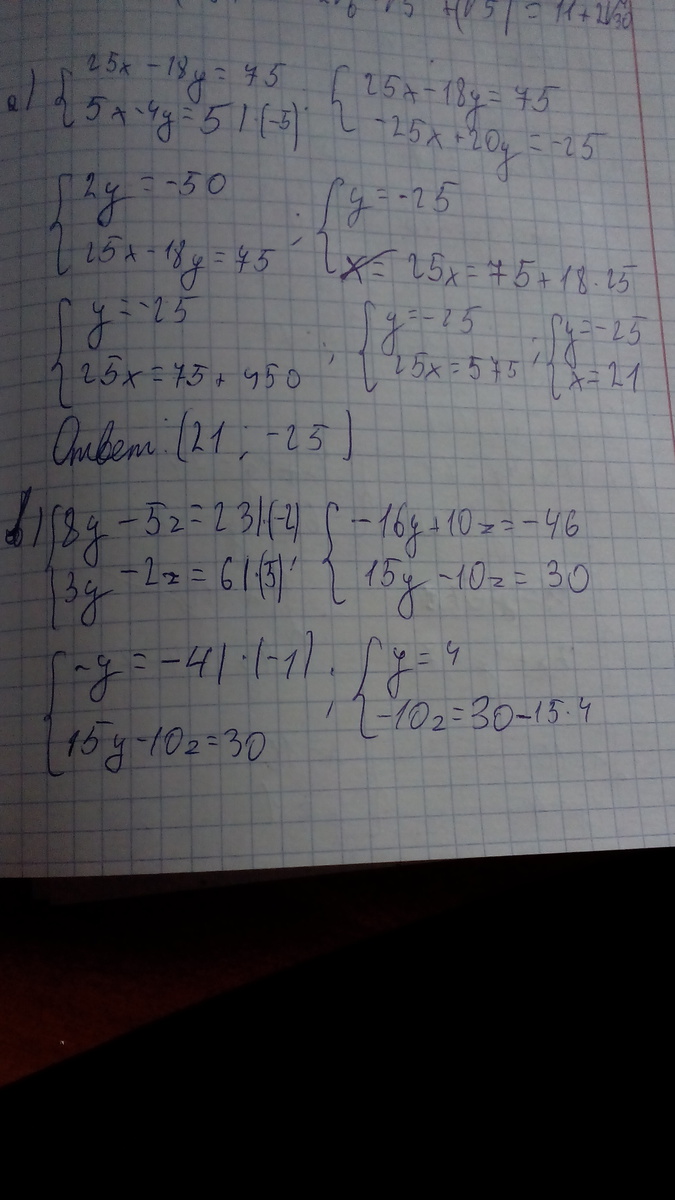 +(√5) = 11+2√30
а) { 25x - 18y = 75
5x - 4y = 5 | · (-5) ; { 25x - 18y = 75
-25x + 20y = -25
{ 2y = -50
25x - 18y = 75 ; { y = -25
25x = 75 + 18 · 25
{ y = -25
25x = 75 + 450 ; { y = -25
25x = 575 ; { y = -25
x = 21
Ответ: (21 ; -25)
{ 8y - 5z = 23 | · (-2)
3y - 2z = 6 | · (5) ; { -16y + 10z = -46
15y - 10z = 30
{ -y = -4 | · (-1)
15y - 10z = 30 ; { y = 4
-10z = 30 - 15 · 4